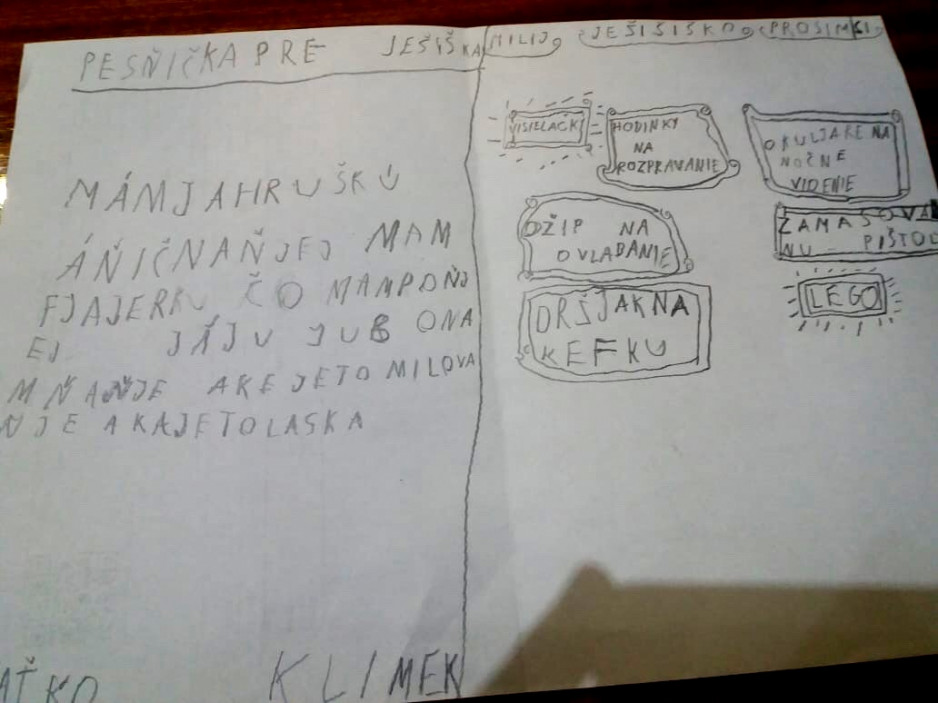 PESŇIČKA PRE JEŠIŠKA
MÁMJAHRUŠKÚ
ÁŇIČNAŇJEJ MAM
FJAJERKU ČO MAMPOŇJ
EJ JÁJU JUB ONA
MŇAŇJE AKEJETO MILOVA
ŇJE AKAJETOLASKA
AŤKO KLIMEK
MILIJ JEŠISISKO PROSIMKI
VISIELAČKI
HODINKY
NA
ROZPRAVANIE
OKULJARE NA
NOČNE
VIDENIE
DŽIP NA
OVLADANIE
ZAMASOVA
NU PIŠTOL
DRŠJAKNA
KEFKU
LEGO